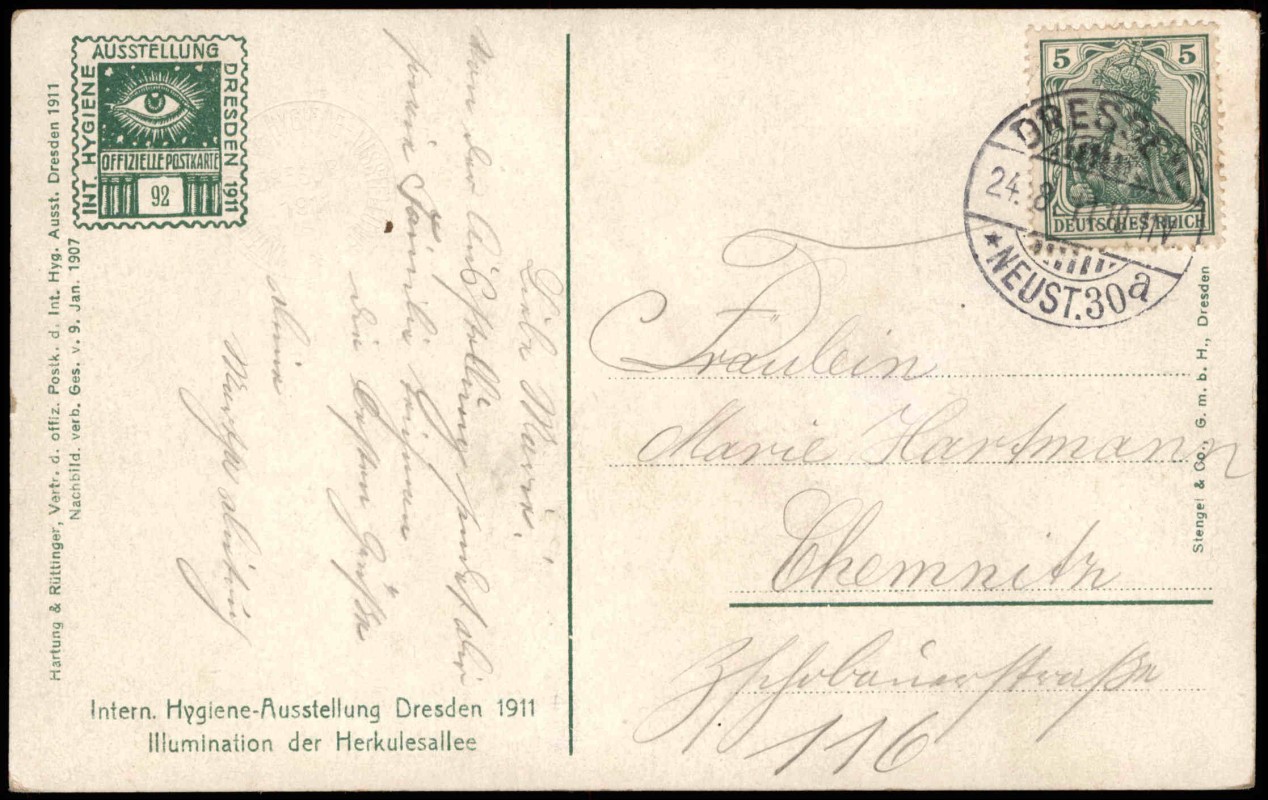 AUSSTELLUNG
INT. HYGIENE
DRESDEN 1911
OFFIZIELLE POSTKARTE
92
Hartung & Rüttinger, Vertr. d. offiz. Postk. d. Int. Hyg. Ausst. Dresden 1911
Nachbild. verb. Ges. v. 9. Jan. 1907
Liebe Marie!
Von der Ausstellung sendet dir
sowie Familie
die besten Grüße
deine
Intern. Hygiene-Ausstellung Dresden 1911
Illumination der Herkulesallee
5 5
DEUTSCHES REICH
DRESDEN
24. 8. 11
* NEUST. 30a
Fräulein
Marie Hartmann
Chemnitz
Zschopauerstraße
116
Stengel & Co., G. m. b. H., Dresden